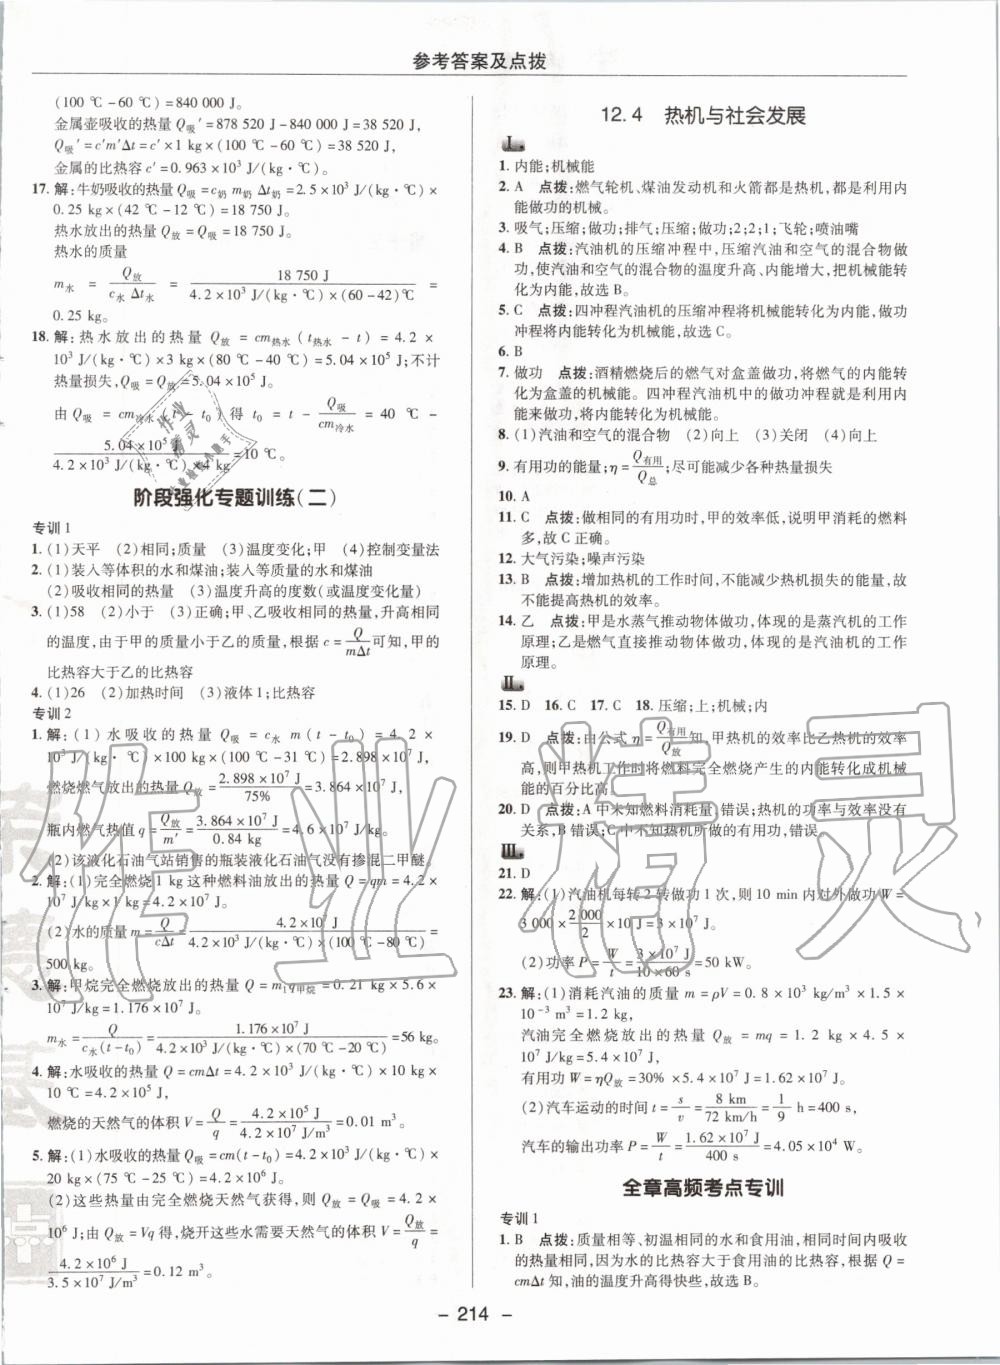 参考答案及点拨
(100 ℃-60 ℃)=840 000 J。
金属壶吸收的热量 Q吸′=878 520 J-840 000 J=38 520 J,
Q吸′=c′m′Δt=c′×1 kg×(100 ℃-60 ℃)=38 520 J,
金属的比热容 c′=0.963×10³ J/(kg·℃)。
17. 解:牛奶吸收的热量 Q吸=c奶 m奶 Δt奶=2.5×10³ J/(kg·℃)×
0.25 kg×(42 ℃-12 ℃)=18 750 J。
热水放出的热量 Q放=Q吸=18 750 J。
热水的质量
m水 = Q放/(c水 Δt水) = 18 750 J/(4.2×10³ J/(kg·℃)×(60-42)℃) =
0.25 kg。
18. 解:热水放出的热量 Q放=cm热水(t热水-t)=4.2×
10³ J/(kg·℃)×3 kg×(80 ℃-40 ℃)=5.04×10⁵ J;不计
热量损失,Q吸=Q放=5.04×10⁵ J。
由 Q吸=cm冷水(t-t₀)得 t₀=t-Q吸/cm冷水=40 ℃-
5.04×10⁵ J/(4.2×10³ J/(kg·℃)×4 kg)=10 ℃。
阶段强化专题训练(二)
专训 1
1. (1)天平 (2)相同;质量 (3)温度变化;甲 (4)控制变量法
2. (1)装入等体积的水和煤油;装入等质量的水和煤油
(2)吸收相同的热量 (3)温度升高的度数(或温度变化量)
3. (1)58 (2)小于 (3)正确;甲、乙吸收相同的热量,升高相同
的温度,由于甲的质量小于乙的质量,根据 c=Q/mΔt可知,甲的
比热容大于乙的比热容
4. (1)26 (2)加热时间 (3)液体 1;比热容
专训 2
1. 解:(1)水吸收的热量 Q吸=c水 m(t-t₀)=4.2×
10³ J/(kg·℃)×100 kg×(100 ℃-31 ℃)=2.898×10⁷ J,
燃烧燃气放出的热量 Q放=2.898×10⁷ J/75%=3.864×10⁷ J,
瓶内燃气热值 q=Q放/m′=3.864×10⁷ J/0.84 kg=4.6×10⁷ J/kg。
(2)该液化石油气站销售的瓶装液化石油气没有掺混二甲醚。
2. 解:(1)完全燃烧 1 kg 这种燃料油放出的热量 Q=qm=4.2×
10⁷ J/kg×1 kg=4.2×10⁷ J。
(2)水的质量 m=Q/cΔt=4.2×10⁷ J/(4.2×10³ J/(kg·℃)×(100 ℃-80 ℃))=
500 kg。
3. 解:甲烷完全燃烧放出的热量 Q=m₁q甲烷=0.21 kg×5.6×
10⁷ J/kg=1.176×10⁷ J。
m水=Q/(c水(t-t₀))=1.176×10⁷ J/(4.2×10³ J/(kg·℃)×(70 ℃-20 ℃))=56 kg。
4. 解:水吸收的热量 Q=cmΔt=4.2×10³ J/(kg·℃)×10 kg×
10 ℃=4.2×10⁵ J,
燃烧的天然气的体积 V=Q/q=4.2×10⁵ J/(4.2×10⁷ J/m³)=0.01 m³。
5. 解:(1)水吸收的热量 Q吸=cm(t-t₀)=4.2×10³ J/(kg·℃)×
20 kg×(75 ℃-25 ℃)=4.2×10⁶ J。
(2)这些热量由完全燃烧天然气获得,则 Q放=Q吸=4.2×
10⁶ J;由 Q放=Vq 得,烧开这些水需要天然气的体积 V=Q放/q=
4.2×10⁶ J/(3.5×10⁷ J/m³)=0.12 m³。
12.4 热机与社会发展
Ⅰ.
1. 内能;机械能
2. A 点拨:燃气轮机、煤油发动机和火箭都是热机,都是利用内
能做功的机械。
3. 吸气;压缩;做功;排气;压缩;做功;2;2;1;飞轮;喷油嘴
4. B 点拨:汽油机的压缩冲程中,压缩汽油和空气的混合物做
功,使汽油和空气的混合物的温度升高、内能增大,把机械能转
化为内能,故选 B。
5. C 点拨:四冲程汽油机的压缩冲程将机械能转化为内能,做功
冲程将内能转化为机械能,故选 C。
6. B
7. 做功 点拨:酒精燃烧后的燃气对盒盖做功,将燃气的内能转
化为盒盖的机械能。四冲程汽油机中的做功冲程就是利用内
能来做功,将内能转化为机械能。
8. (1)汽油和空气的混合物 (2)向上 (3)关闭 (4)向上
9. 有用功的能量;η=Q有用/Q总;尽可能减少各种热量损失
10. A
11. C 点拨:做相同的有用功时,甲的效率低,说明甲消耗的燃料
多,故 C 正确。
12. 大气污染;噪声污染
13. B 点拨:增加热机的工作时间,不能减少热机损失的能量,故
不能提高热机的效率。
14. 乙 点拨:甲是水蒸气推动物体做功,体现的是蒸汽机的工作
原理;乙是燃气直接推动物体做功,体现的是汽油机的工作
原理。
Ⅱ.
15. D 16. C 17. C 18. 压缩;上;机械;内
19. D 点拨:由公式 η=Q有用/Q放知,甲热机的效率比乙热机的效率
高,则甲热机工作时将燃料完全燃烧产生的内能转化成机械
能的百分比高。
20. D 点拨:A 中未知燃料消耗量,错误;热机的功率与效率没有
关系,B 错误;C 中不知热机所做的有用功,错误。
Ⅲ.
21. D
22. 解:(1)汽油机每转 2 转做功 1 次,则 10 min 内对外做功 W=
3 000×2 000/2×10 J=3×10⁷ J。
(2)功率 P=W/t=3×10⁷ J/(10×60 s)=50 kW。
23. 解:(1)消耗汽油的质量 m=ρV=0.8×10³ kg/m³×1.5×
10⁻³ m³=1.2 kg,
汽油完全燃烧放出的热量 Q放=mq=1.2 kg×4.5×
10⁷ J/kg=5.4×10⁷ J,
有用功 W=ηQ放=30%×5.4×10⁷ J=1.62×10⁷ J。
(2)汽车运动的时间 t=s/v=8 km/(72 km/h)=1/9 h=400 s,
汽车的输出功率 P=W/t=1.62×10⁷ J/400 s=4.05×10⁴ W。
全章高频考点专训
专训 1
1. B 点拨:质量相等、初温相同的水和食用油,相同时间内吸收
的热量相同,因为水的比热容大于食用油的比热容,根据 Q=
cmΔt 知,油的温度升高得快些,故选 B。
- 214 -
作业精灵